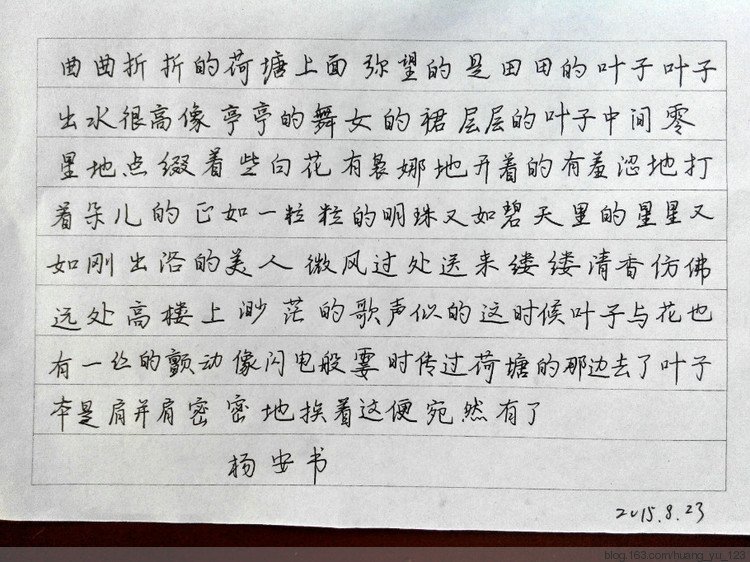 曲曲折折的荷塘上面弥望的是田田的叶子叶子
出水很高像亭亭的舞女的裙层层的叶子中间零
星地点缀着些白花有袅娜地开着的有羞涩地打
着朵儿的正如一粒粒的明珠又如碧天里的星星又
如刚出浴的美人微风过处送来缕缕清香仿佛
远处高楼上渺茫的歌声似的这时候叶子与花也
有一丝的颤动像闪电般霎时传过荷塘的那边去了叶子
本是肩并肩密密地挨着这便宛然有了
杨安书
2015.8.23
blog.163.com/huang_yu_123